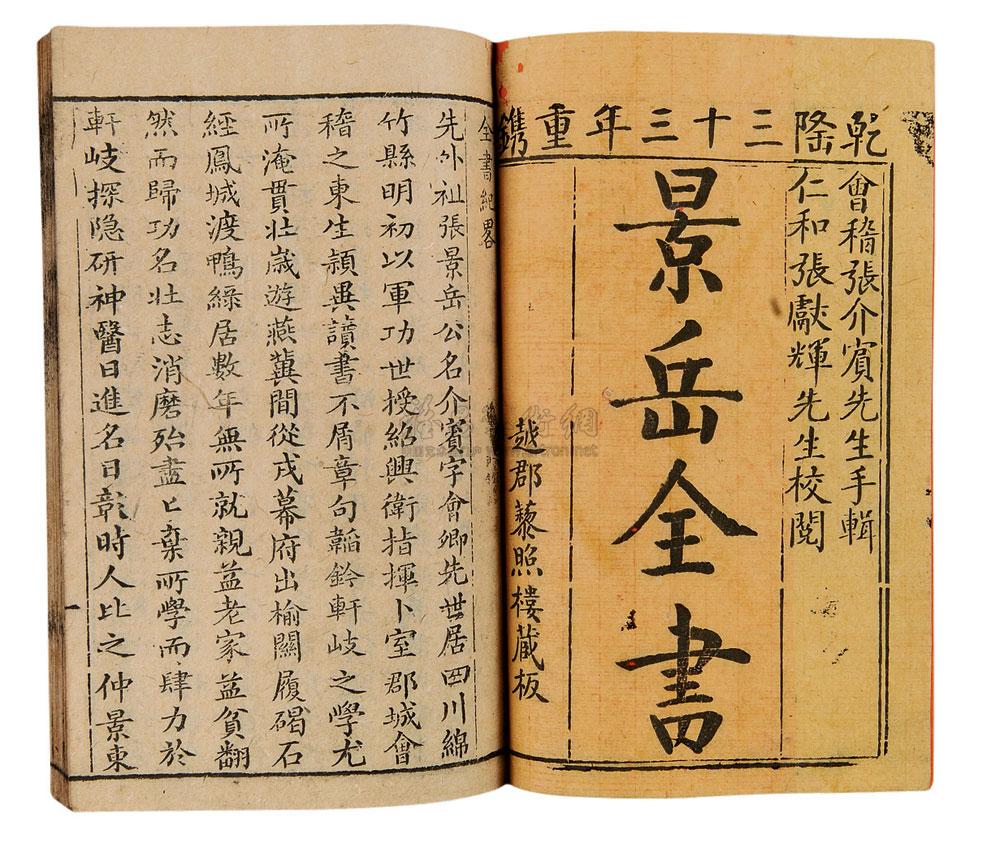 乾隆三十三年重鐫
會稽張介賓先生手輯
仁和張獻輝先生校閱
景岳全書
越郡藜照樓藏板
全書紀畧
先外祖張景岳公名介賓字會卿先世居四川綿
竹縣明初以軍功世授紹興衛指揮卜室郡城會
稽之東生頴異讀書不屑章句韜鈐軒岐之學尤
所淹貫壯歳遊燕冀間從戎幕府出榆關履碣石
經鳳城渡鴨綠居數年無所就親益老家益貧翻
然而歸功名壯志消磨殆盡匕棄所學而肆力於
軒岐探隐研神醫日進名日彰時人比之仲景東
一